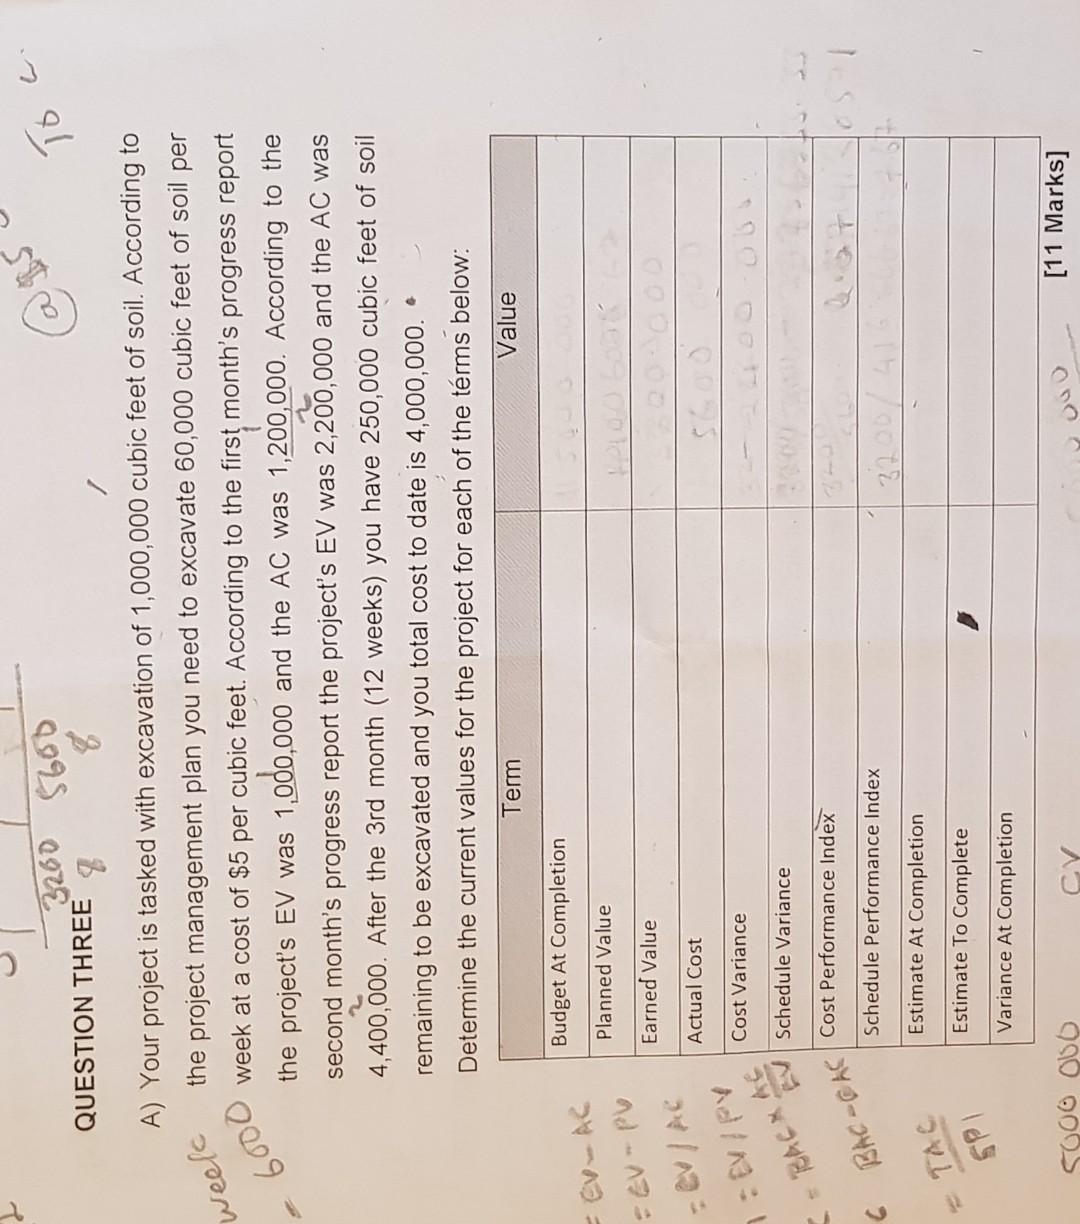 @ $5
To
3260 5600
8 8
QUESTION THREE
A) Your project is tasked with excavation of 1,000,000 cubic feet of soil. According to
the project management plan you need to excavate 60,000 cubic feet of soil per
week at a cost of $5 per cubic feet. According to the first month's progress report
the project's EV was 1,000,000 and the AC was 1,200,000. According to the
second month's progress report the project's EV was 2,200,000 and the AC was
4,400,000. After the 3rd month (12 weeks) you have 250,000 cubic feet of soil
remaining to be excavated and you total cost to date is 4,000,000.
Determine the current values for the project for each of the terms below:
week
= 600
Term Value
Budget At Completion
Planned Value
Earned Value
Actual Cost
Cost Variance
Schedule Variance
Cost Performance Index
Schedule Performance Index
Estimate At Completion
Estimate To Complete
Variance At Completion
= EV - AC
= EV - PV
= EV / AC
= EV / PV
= BAC × AC
EV
BAC - EAC
= TAC
SPI
[11 Marks]
5000 000 CV